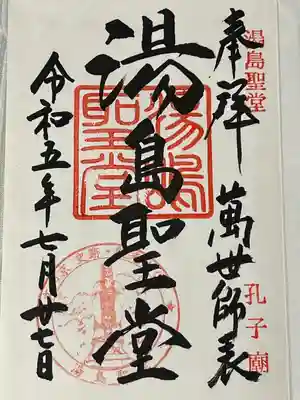 湯島聖堂
孔子廟
奉拝
萬世師表
湯島聖堂
湯嶋
聖堂
令和五年七月廿七日